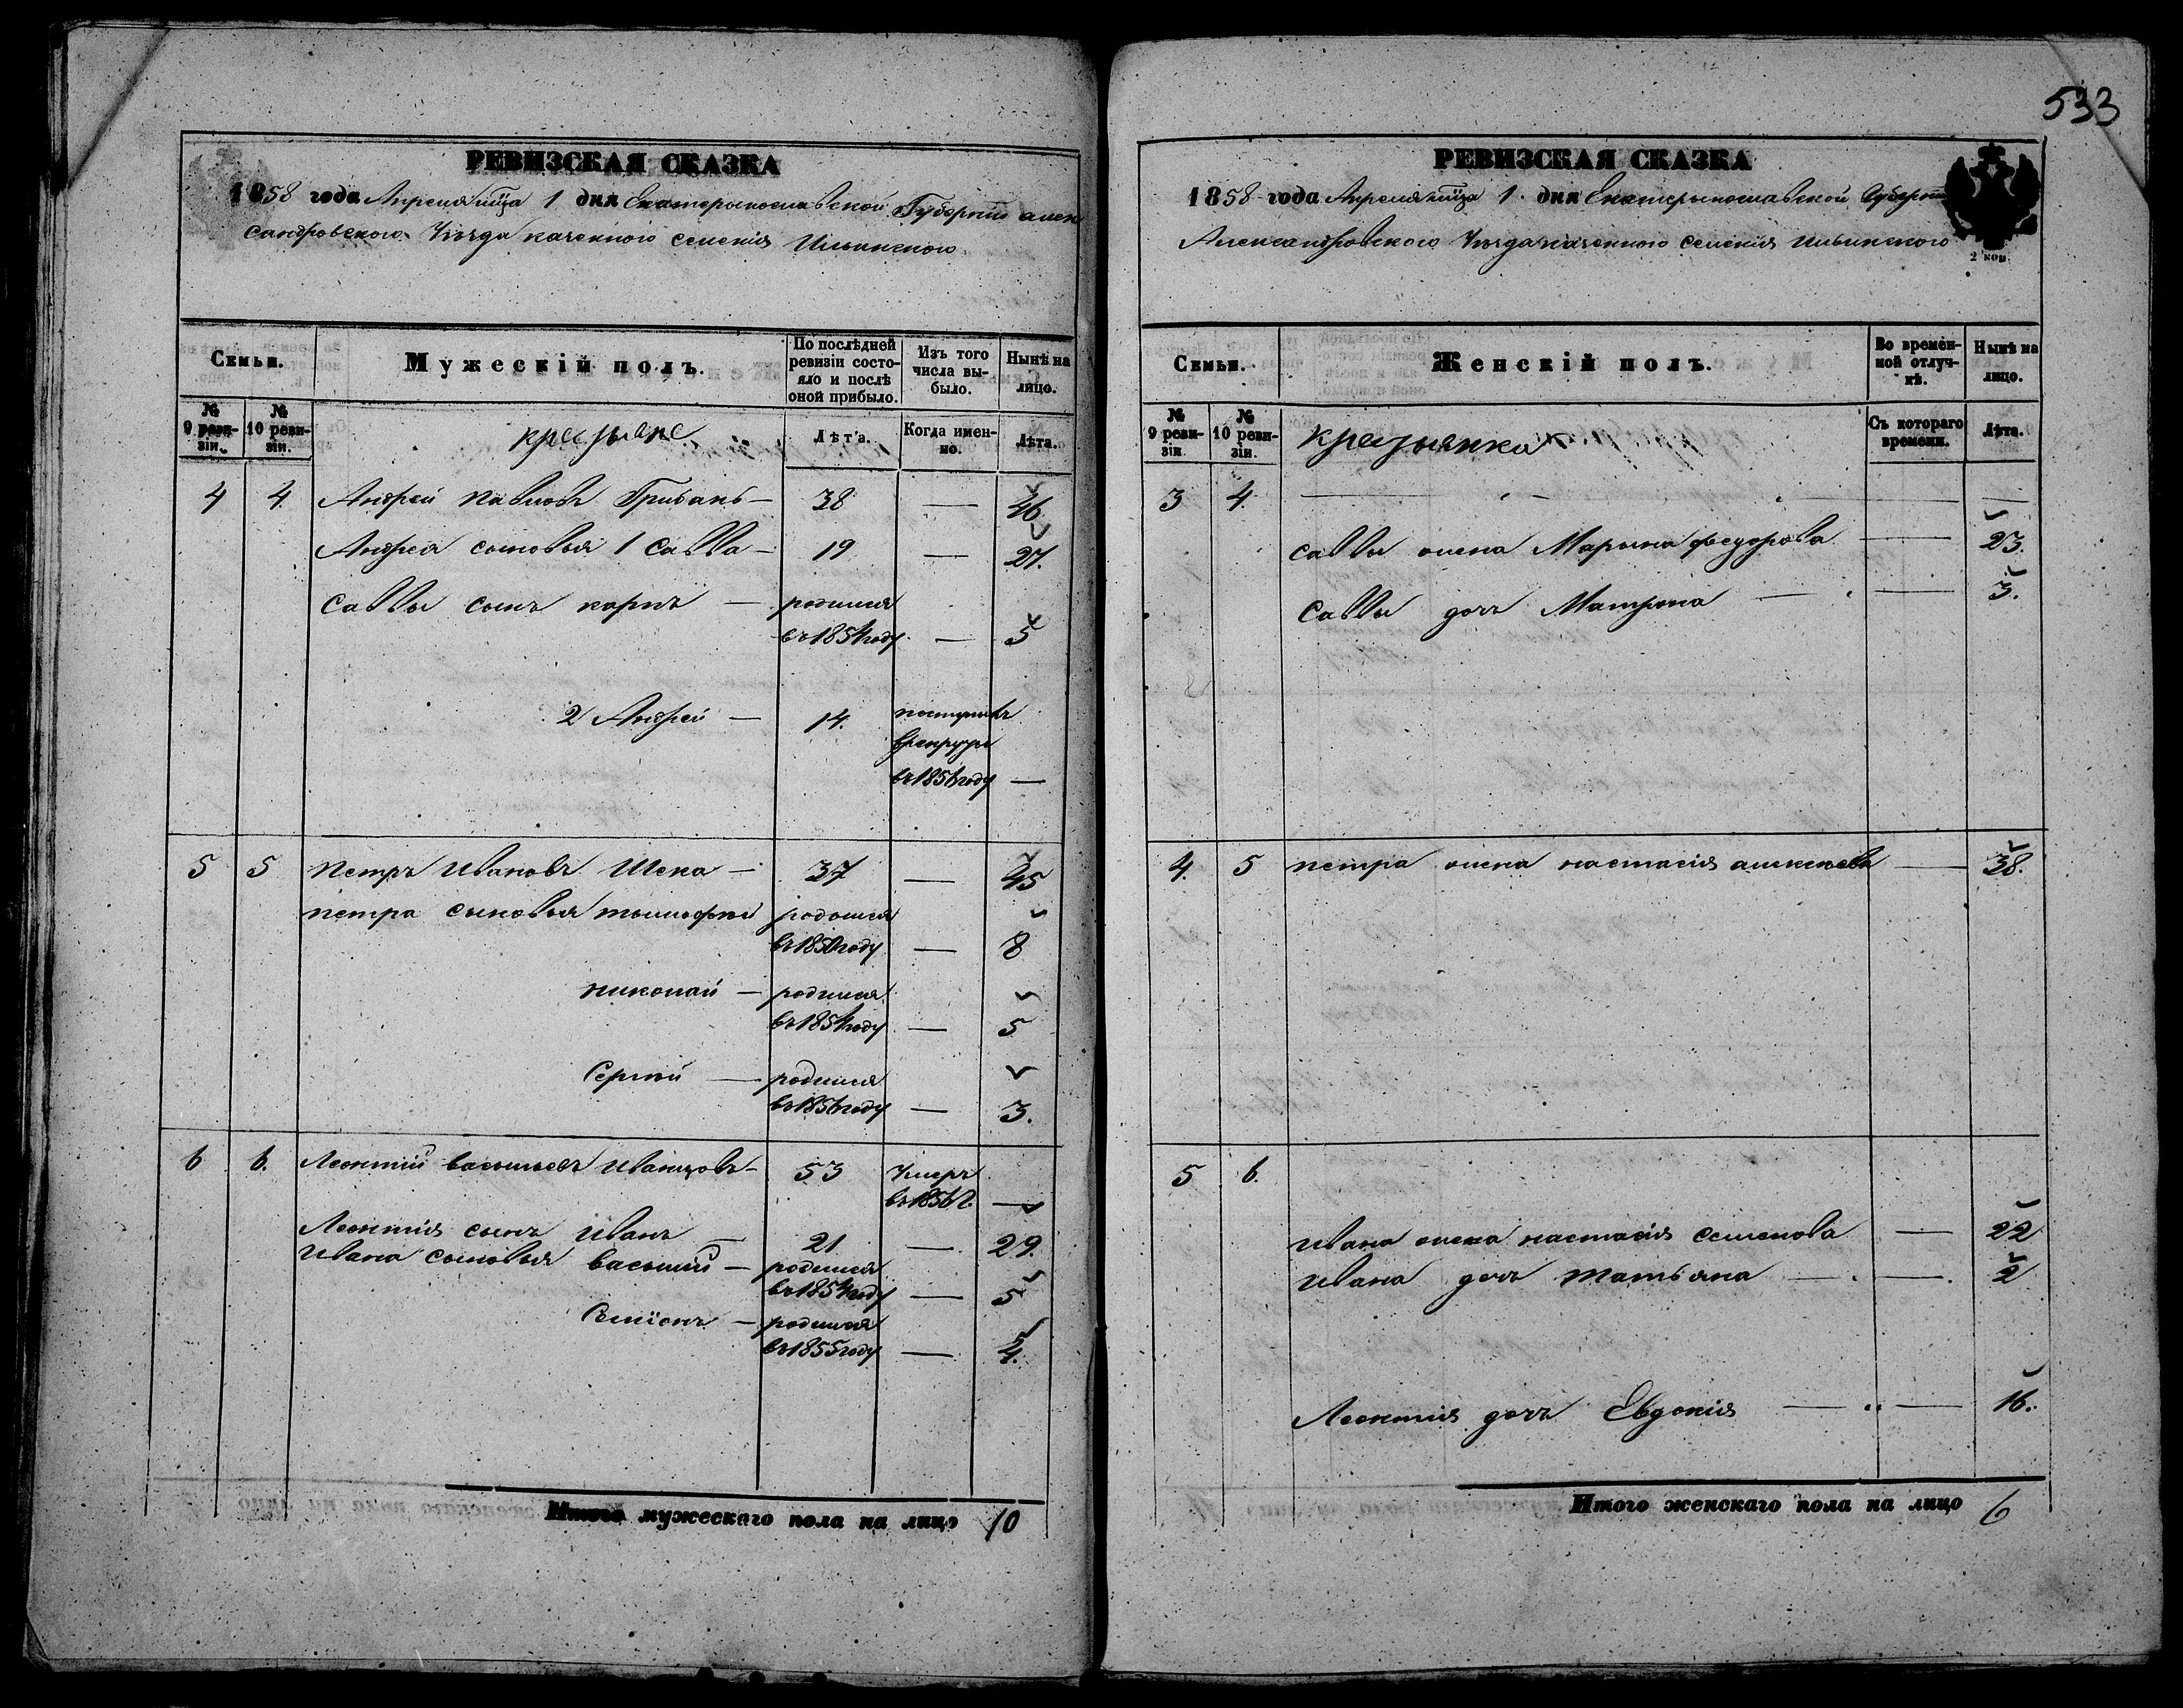 533
РЕВИЗСКАЯ СКАЗКА
1858 года Апреля мца 1 дня Екатерынославской Губернии алек
сандровского Уезда казенного селения Ильинского
Семьи. Мужескій полъ. По послѣдней ревизіи состояло и послѣ оной прибыло. Изъ того числа выбыло. Нынѣ на лицо.
№ 9 ревизіи. № 10 ревизіи. крестьяне Лѣта. Когда именно. Лѣта.
4 4. Андрей Павловъ Грибань — 38 — 46.
Андрея сыновья 1 Савва — 19 — 27.
Саввы сынъ карпъ — родился
въ 1854 году — 5
2 Андрей — 14. поступилъ
в рекруты
въ 1854 году —
5 5 Петръ Ивановъ Шека — 37 — 45
петра сыновья тымофѣй родился
въ 1850 году — 8
николай — родился
въ 1854 году — 5
Сергѣй — родился
въ 1856 году — 3.
6 6. Леонтий васыльевъ Иванцовъ — 53 Умеръ
въ 1856 г. —
Леонтия сынъ Иванъ — 21 — 29.
Ивана сыновья васылий — родился
въ 1854 году — 5
Семіонъ — родился
въ 1855 году — 4.
Итого мужескаго пола на лицо 10
РЕВИЗСКАЯ СКАЗКА
1858 года Апреля мца 1. дня Екатерынославской Губернии
Александровского Уезда казенного селения Ильинского
2 коп.
Семьи. Женскій полъ. Во временной отлучкѣ. Нынѣ на лицо.
№ 9 ревизіи. № 10 ревизіи. крестьянки Съ котораго времени. Лѣта.
3 4. — — —
Саввы жена Марына федорова — 23.
Саввы дочъ Матрона — — 3.
4. 5 петра жена настасія алексеева — 38.
5 6.
Ивана жена настасія Семенова — 22
Ивана дочъ Татьяна — — 2
Леонтия дочъ Евдокия — — 16.
Итого женскаго пола на лицо 6